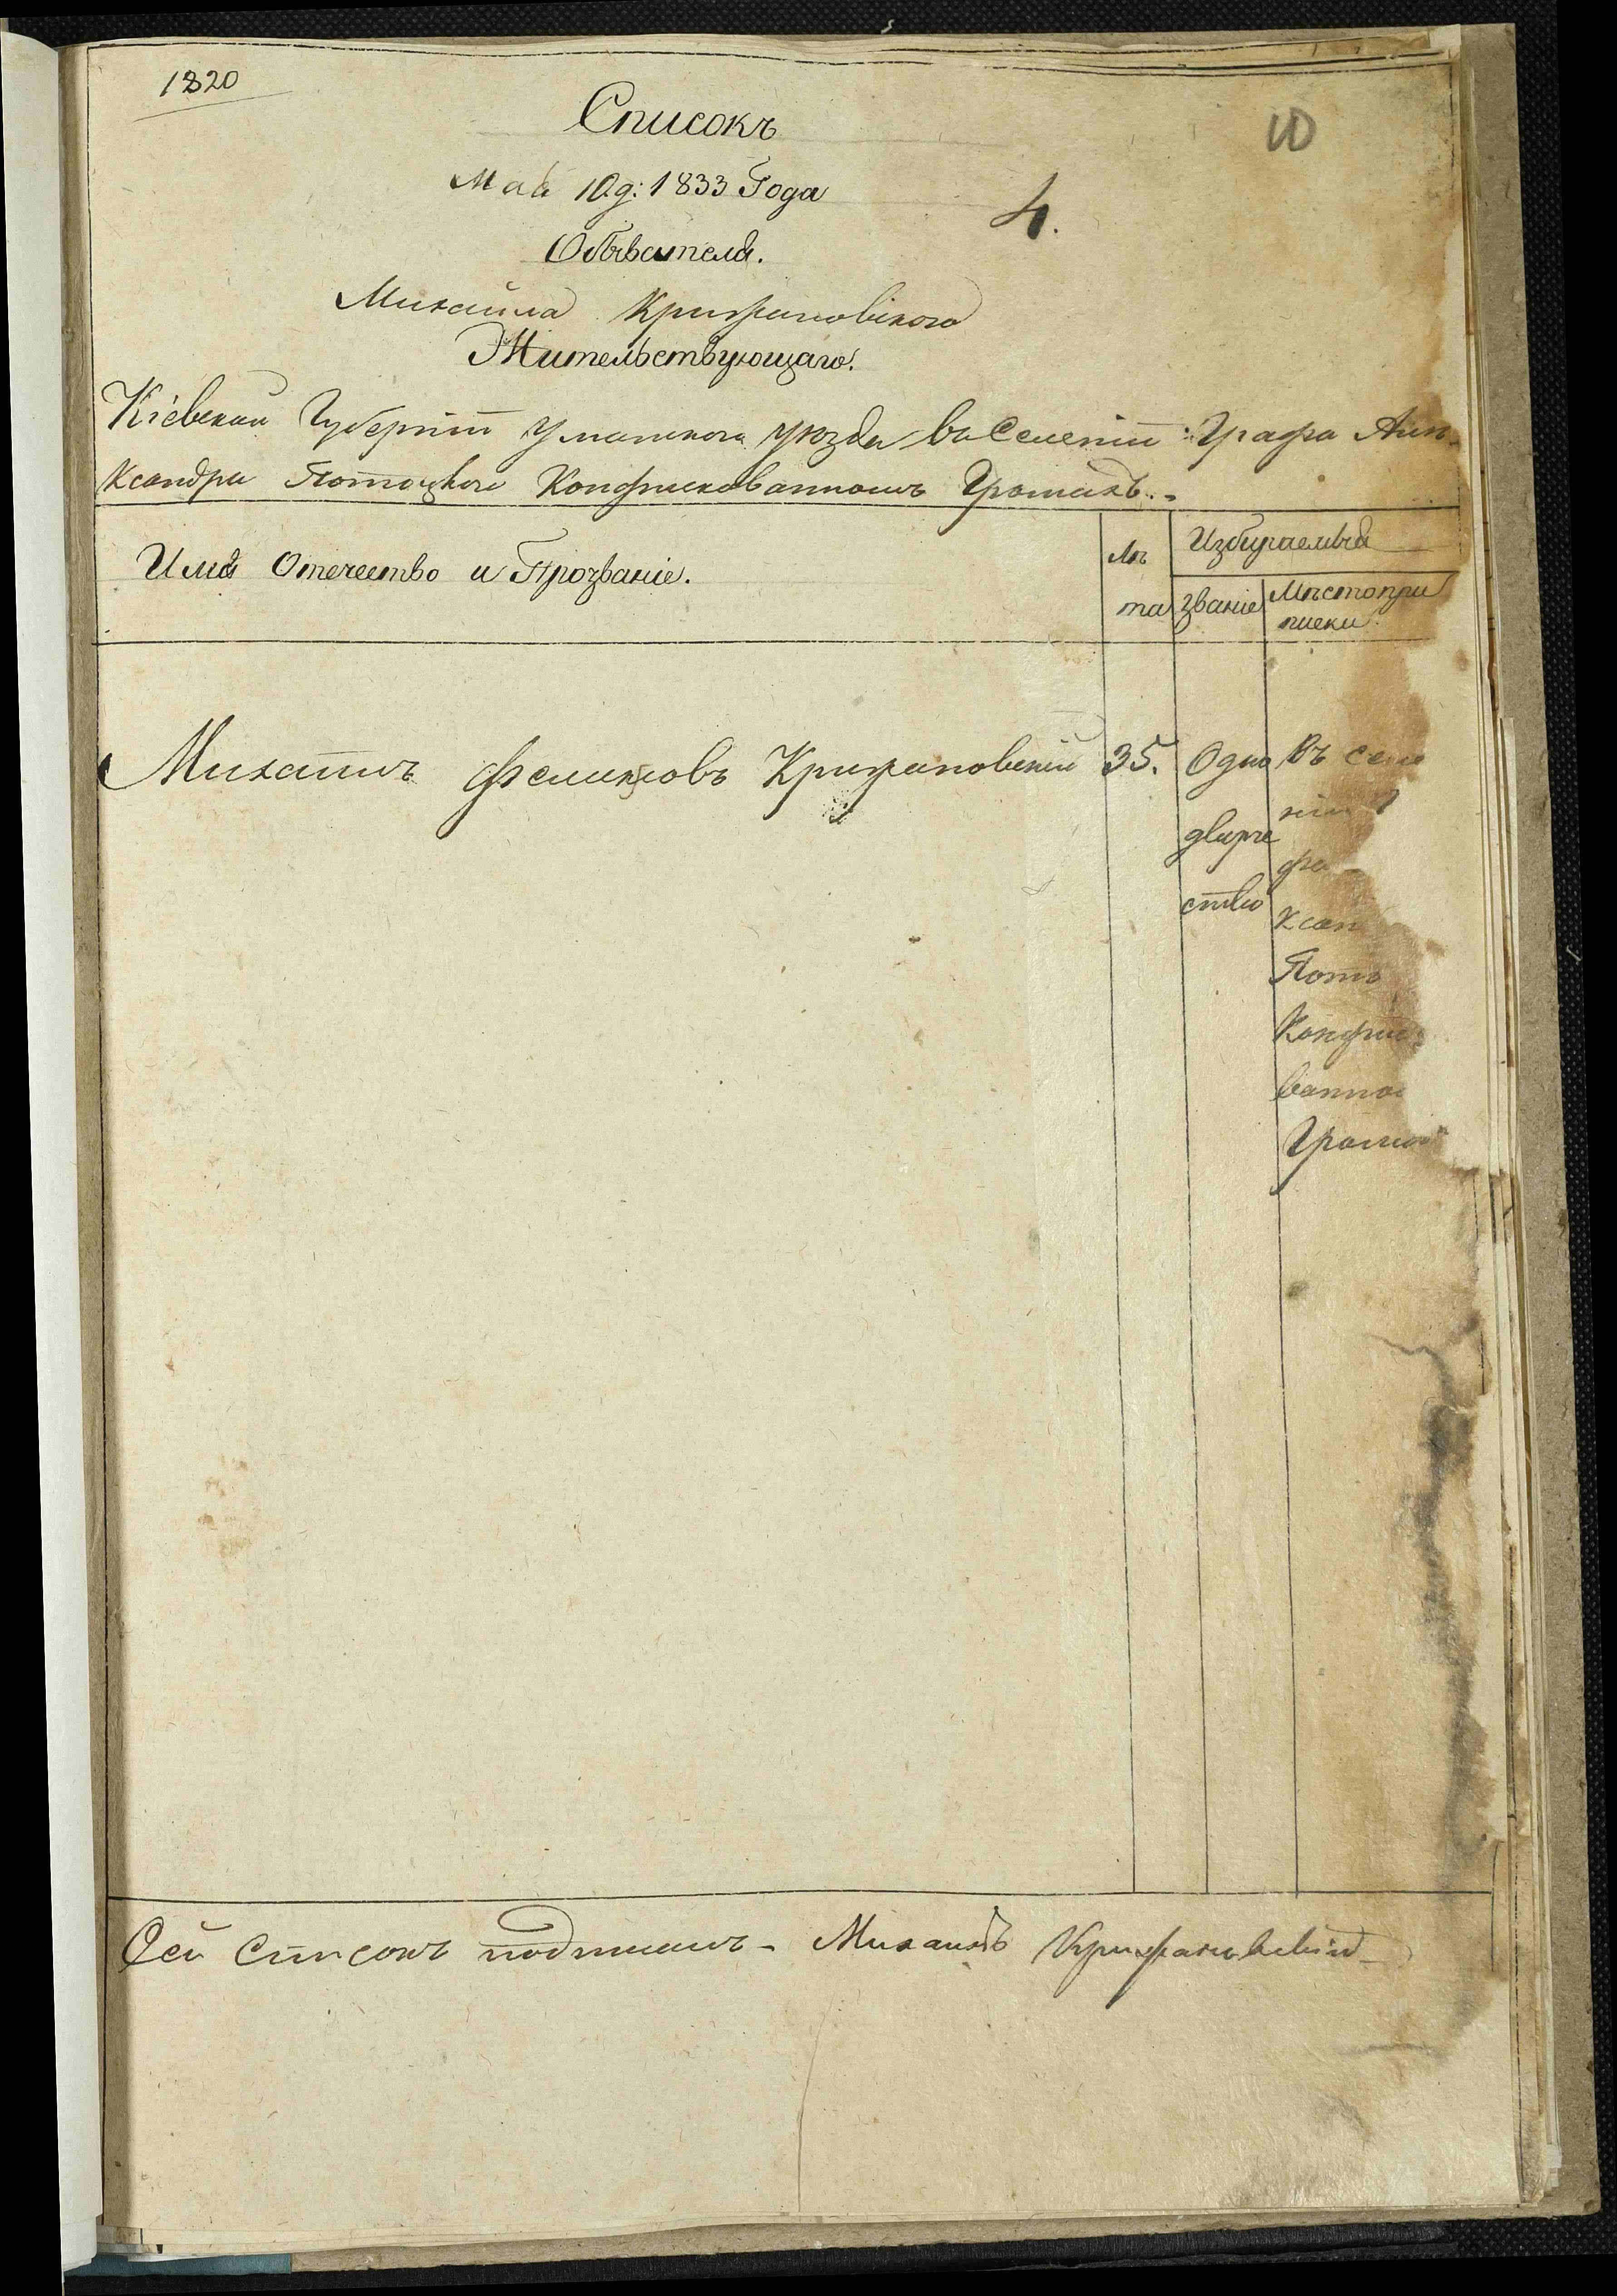 1820
Списокъ
10
Мая 10 д: 1833 Года
4.
Обывателя.
Михайла Крижановскаго
Жительствующаго.
Кіевской Губерніи Уманскаго уезда въ Селеніи Графа Але-
ксандра Потоцкого Конфискованномъ Громахъ.
Имя Отечество и Прозваніе.
Лѣ
та
Избираемыя
званіе
Мѣсто при
писки
Михаилъ Феликсовъ Крижановскій 35. Одно Въ селе
ніи
дворче
фа
ство
ксан
Пото
Конфис
ванно
Громах
Сей Списокъ подписалъ - Михаилъ Крижановскій